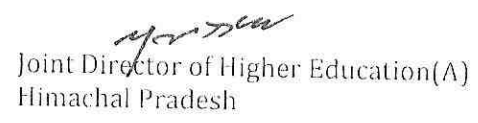 Joint Director of Higher Education(A)
Himachal Pradesh